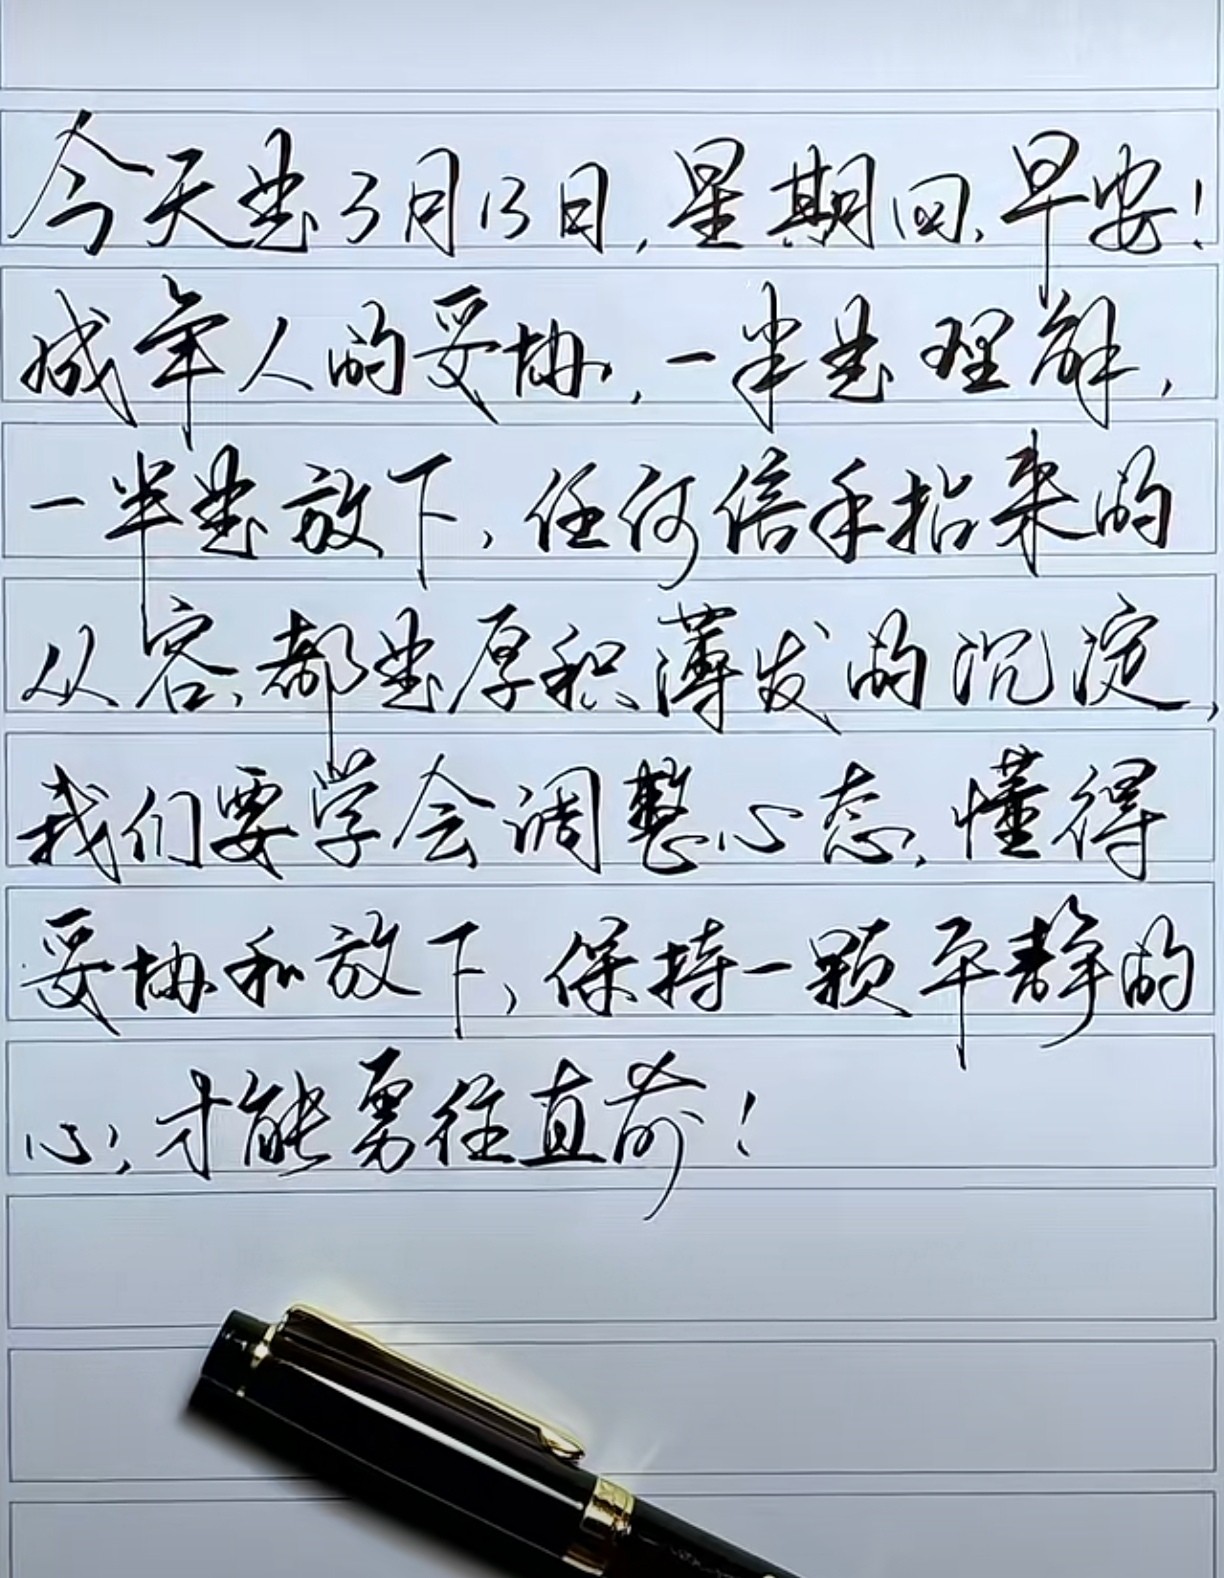 今天是3月13日,星期四,早安!
成年人的妥协,一半是理解,
一半是放下,任何信手拈来的
从容,都是厚积薄发的沉淀,
我们要学会调整心态,懂得
妥协和放下,保持一颗平静的
心,才能勇往直前!